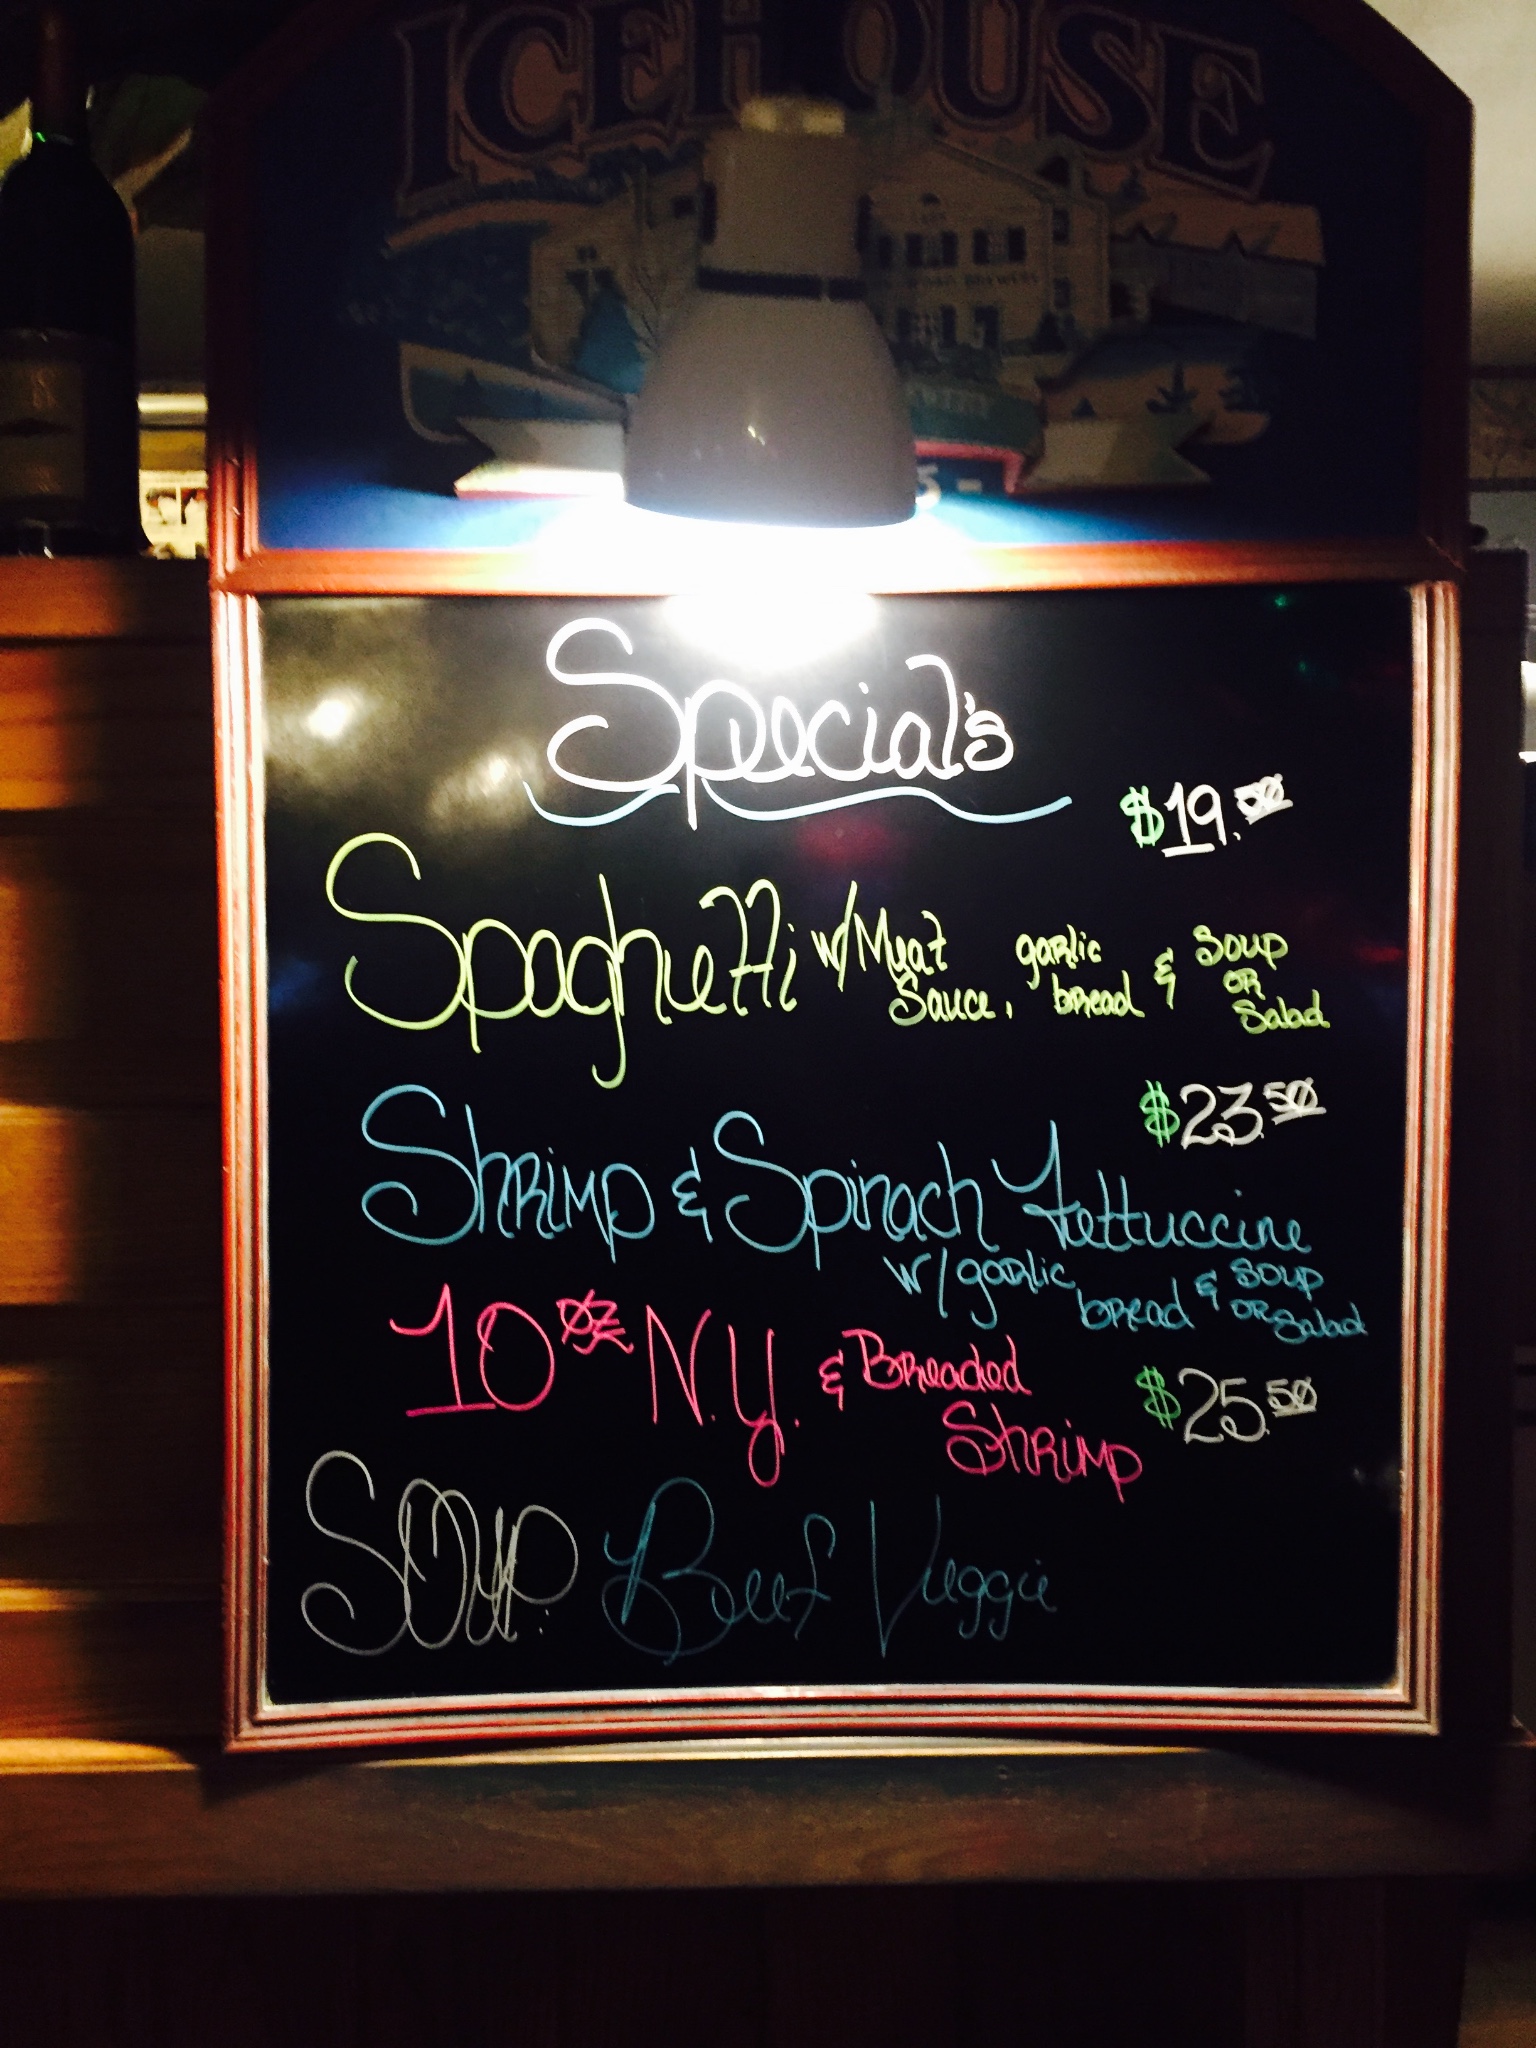 ICEHOUSE
Special's
$19.50
Spaghetti w/ Meat Sauce, garlic bread & Soup OR Salad
$23.50
Shrimp & Spinach Fettuccine
w/ garlic bread & Soup OR Salad
10 oz N.Y. & Breaded Shrimp $25.50
Soup: Beef Veggie